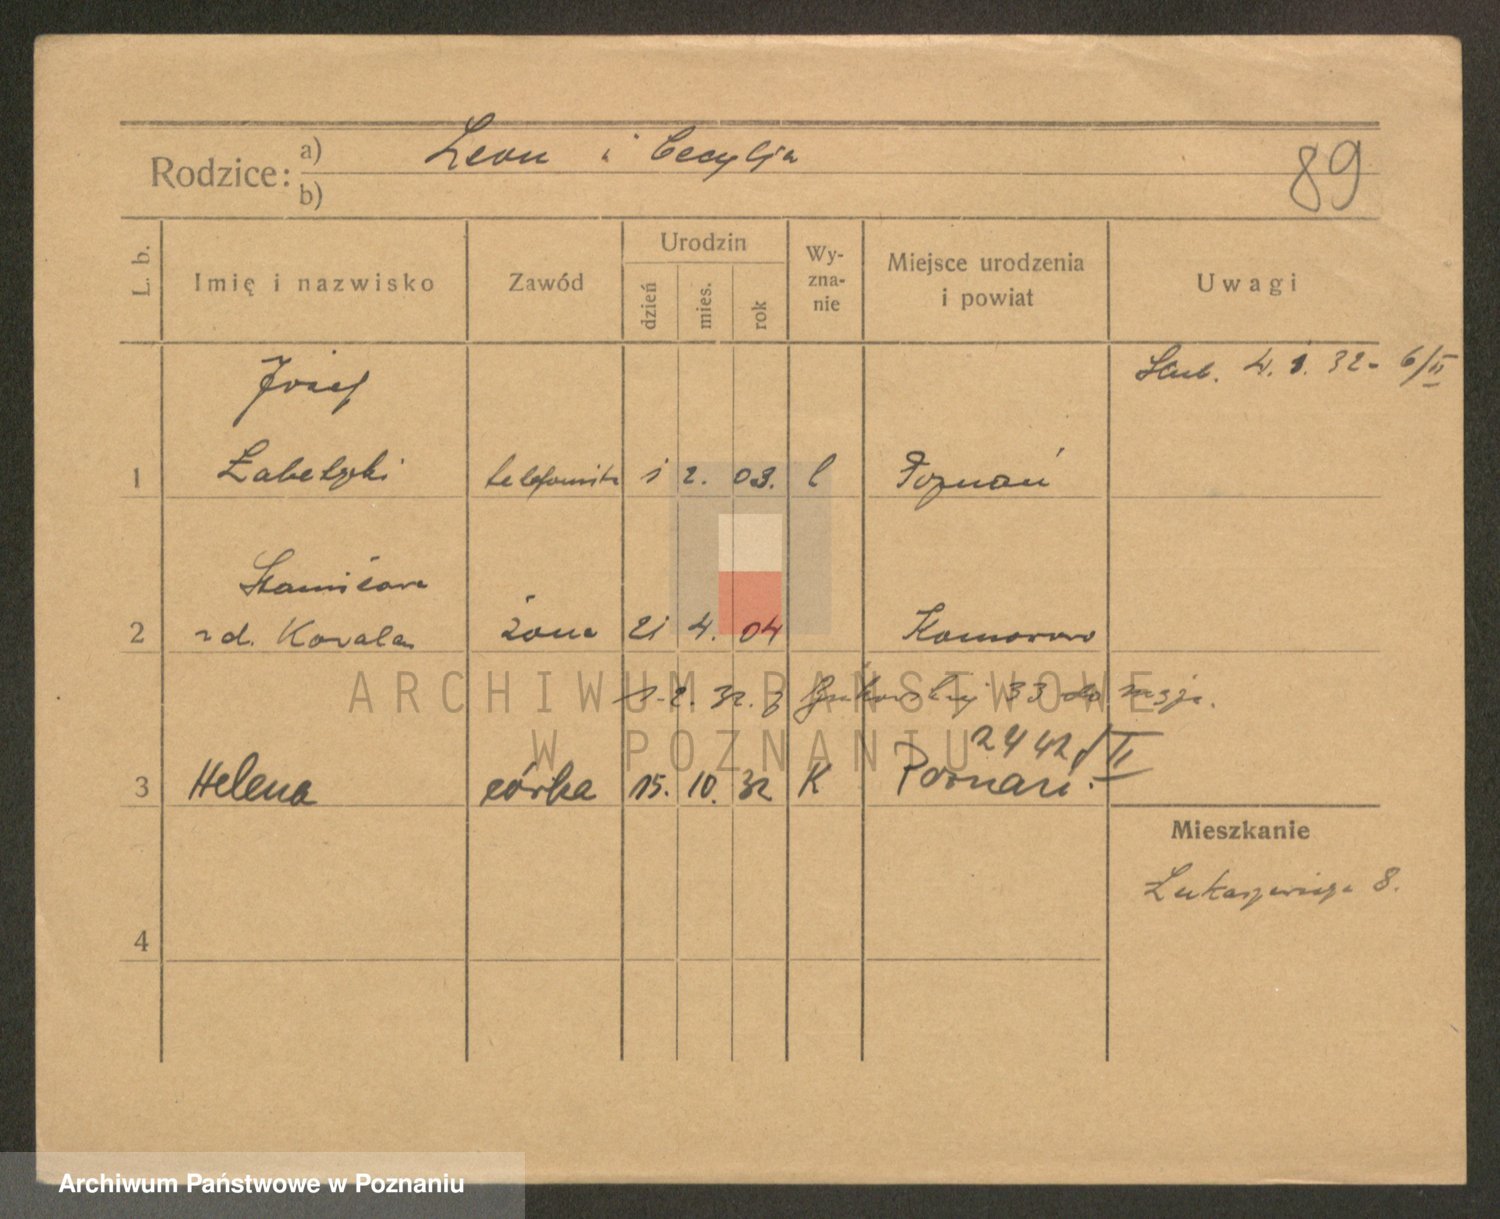 Rodzice: a) Leon i Cecylja
b)
89
L. b.
Imię i nazwisko
Zawód
Urodzin
dzień
mies.
rok
Wy-
zna-
nie
Miejsce urodzenia
i powiat
Uwagi
Józef
Ślub. 4. 1. 32 - 6/II
1 telefonista 1 2. 03. Poznań
2 Kowala żona 21 4. 04 Komorowo
ARCHIWUM PAŃSTWOWE
1-2. 32. z Bukowskiej 33 do
W POZNANIU
2442/II
3 Helena córka 15. 10. 32 K Poznań.
Mieszkanie
Łukaszewicza 8.
4
Archiwum Państwowe w Poznaniu